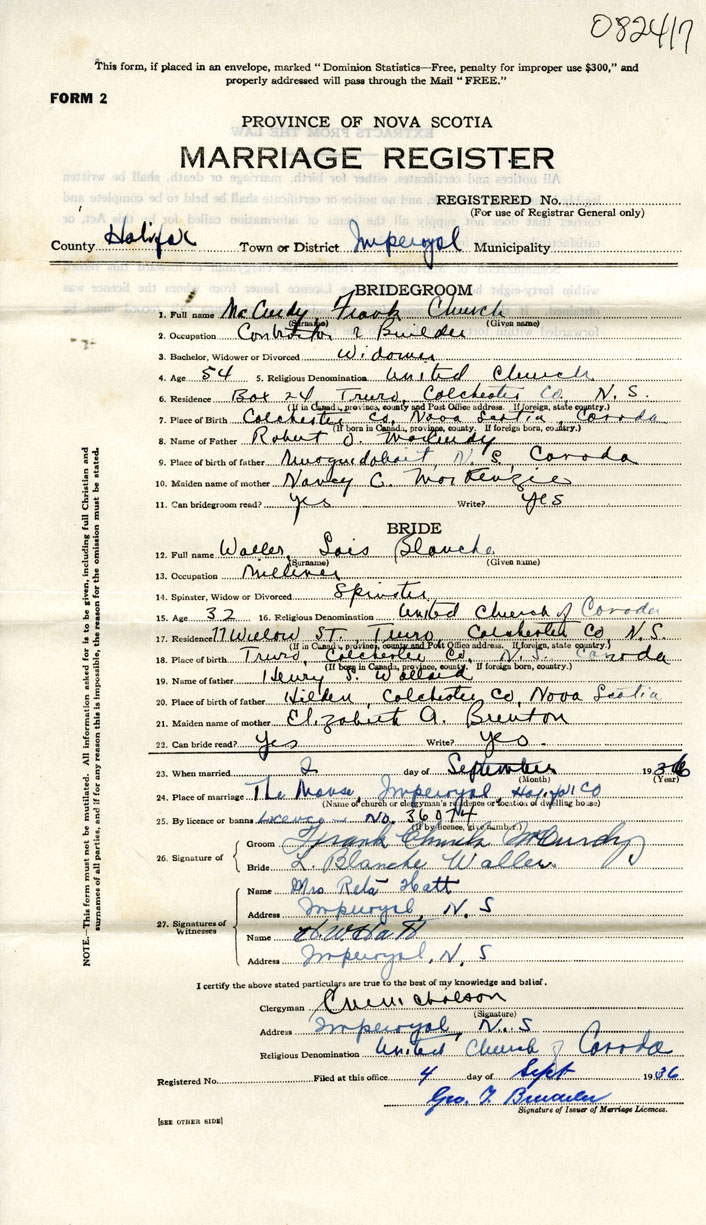 082417
This form, if placed in an envelope, marked “Dominion Statistics—Free, penalty for improper use $300,” and
properly addressed will pass through the Mail “FREE.”
FORM 2
PROVINCE OF NOVA SCOTIA
MARRIAGE REGISTER
REGISTERED No.
(For use of Registrar General only)
County Halifax Town or District Imperoyal Municipality
BRIDEGROOM
1. Full name McCurdy Frank Church
(Surname) (Given name)
2. Occupation Contractor & Builder
3. Bachelor, Widower or Divorced Widower
4. Age 54 5. Religious Denomination United Church
6. Residence Box 24, Truro, Colchester Co, N. S.
(If in Canada, province, county and Post Office address. If foreign, state country.)
7. Place of Birth Colchester Co, Nova Scotia, Canada
(If born in Canada, province, county. If foreign born, country.)
8. Name of Father Robert O. McCurdy
9. Place of birth of father Musquodoboit, N. S, Canada
10. Maiden name of mother Nancy C. MacKenzie
11. Can bridegroom read? yes Write? yes
BRIDE
12. Full name Waller, Lois Blanche
(Surname) (Given name)
13. Occupation Milliner
14. Spinster, Widow or Divorced Spinster
15. Age 32 16. Religious Denomination United Church of Canada
17. Residence 77 Willow ST, Truro, Colchester Co, N.S.
(If in Canada, province, county and Post Office address. If foreign, state country.)
18. Place of birth Truro, Colchester Co, N. S. Canada
(If born in Canada, province, county. If foreign born, country.)
19. Name of father Henry S.
20. Place of birth of father Hilden, Colchester Co, Nova Scotia
21. Maiden name of mother Elizabeth A. Brenton
22. Can bride read? yes Write? yes.
23. When married 2 day of September 1936
(Month) (Year)
24. Place of marriage The Manse, Imperoyal, Halifax Co
(Name of church or clergyman's residence or location of dwelling house)
25. By licence or banns Licence — No. 36074
(If by licence, give number.)
26. Signature of
Groom Frank Church McCurdy
Bride L. Blanche Waller.
27. Signatures of Witnesses
Name Mrs Reta Hatt
Address Imperoyal, N. S
Name H. W. Hatt
Address Imperoyal, N. S
I certify the above stated particulars are true to the best of my knowledge and belief.
Clergyman Nicholson
(Signature)
Address Imperoyal, N. S
Religious Denomination United Church of Canada
Registered No. Filed at this office 4 day of Sept 1936
Geo. F.
Signature of Issuer of Marriage Licences.
[SEE OTHER SIDE]
NOTE.—This form must not be mutilated. All information asked for is to be given, including full Christian and
surnames of all parties, and if for any reason this is impossible, the reason for the omission must be stated.